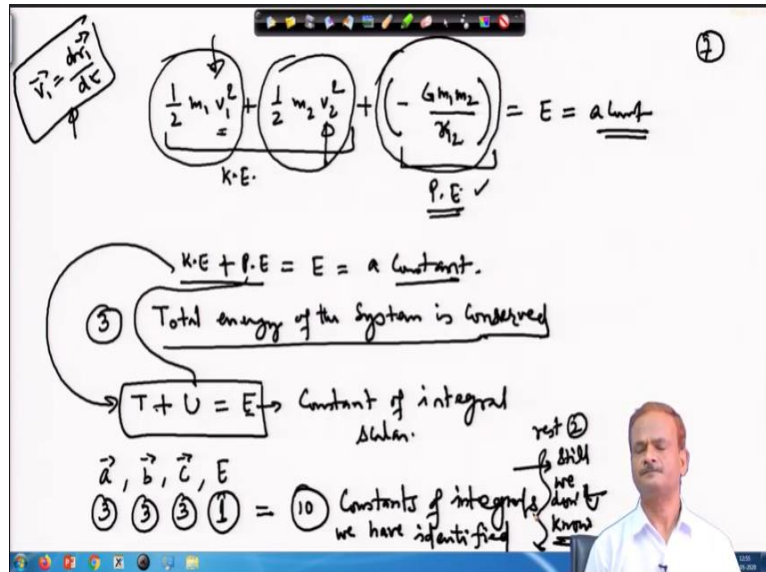 ⑦
v⃗₁ = dr⃗₁/dt
½ m₁ v₁² + ½ m₂ v₂² + (- G m₁ m₂ / r₁₂) = E = a Const
K.E.
P.E. ✓
K.E + P.E = E = a Constant.
③ Total energy of the System is Conserved
T + U = E → Constant of integral
scalar.
a⃗, b⃗, c⃗, E
③ ③ ③ ① = ⑩ Constants of integrals
we have identified
rest ②
still
we
don't
know
12:55